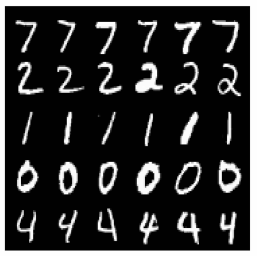 7 7 7 7 7 7
2 2 2 2 2 2
1 1 1 1 1 1
0 0 0 0 0 0
4 4 4 4 4 4